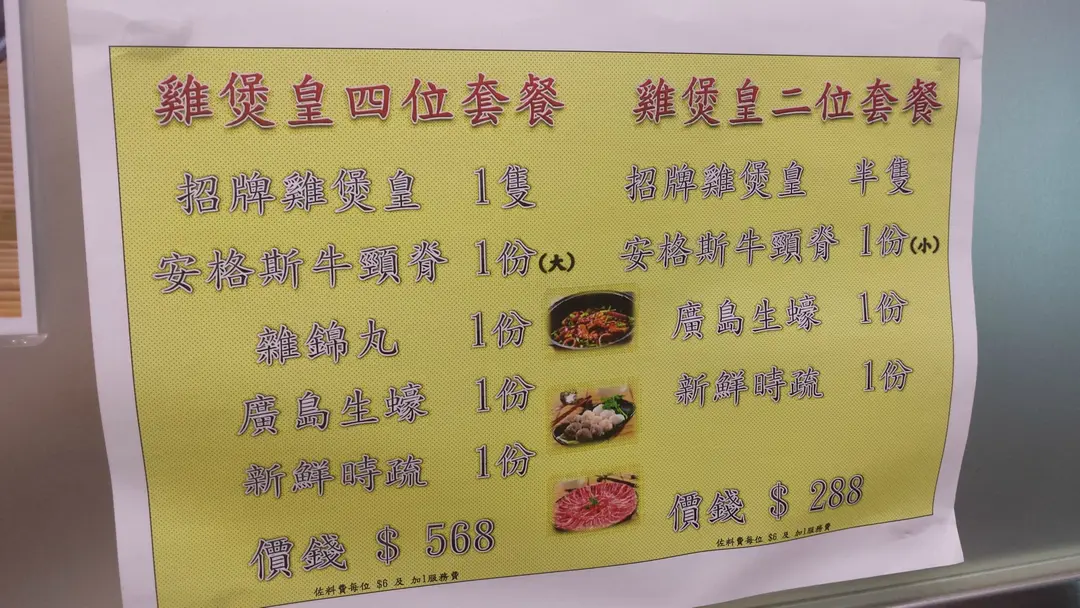 雞煲皇四位套餐
招牌雞煲皇 1隻
安格斯牛頸脊 1份(大)
雜錦丸 1份
廣島生蠔 1份
新鮮時疏 1份
價錢 $ 568
佐料費每位 $6 及 加1服務費
雞煲皇二位套餐
招牌雞煲皇 半隻
安格斯牛頸脊 1份(小)
廣島生蠔 1份
新鮮時疏 1份
價錢 $ 288
佐料費每位 $6 及 加1服務費